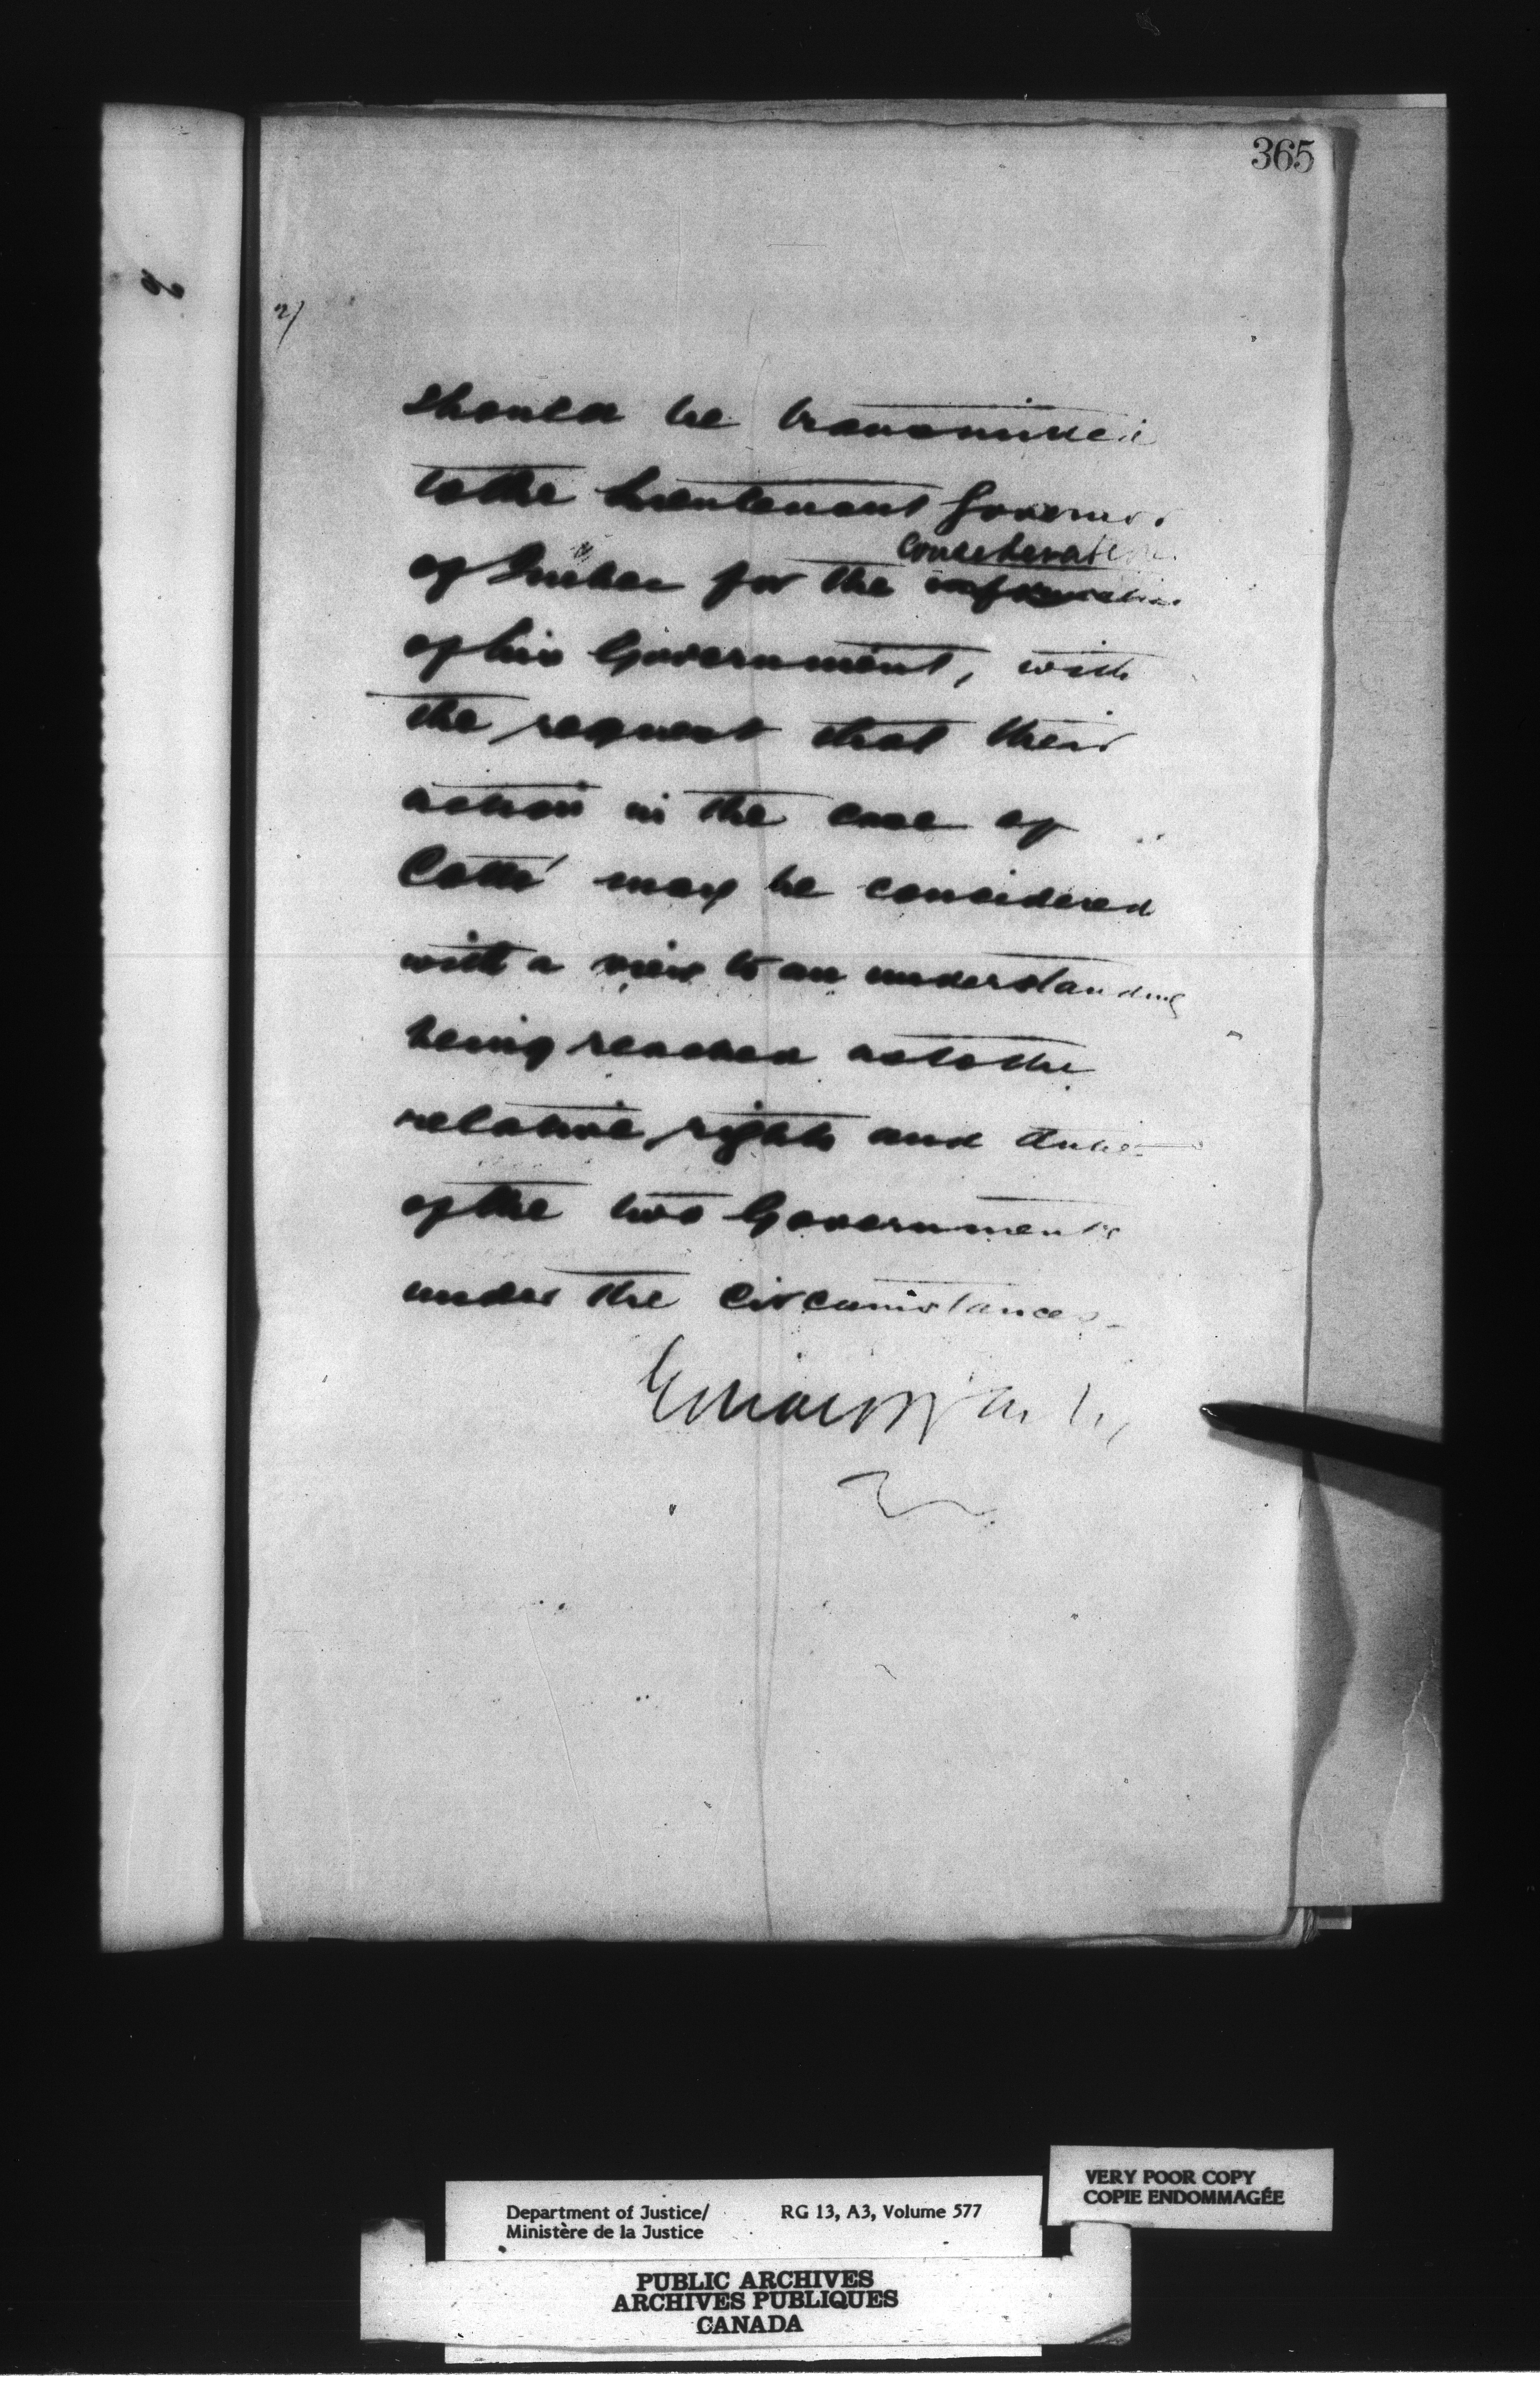 365
2/
should be transmitted
to the Lieutenant Governor
consideration
of Quebec for the information
of his Government, with
the request that their
action in the case of
Cotté may be considered
with a view to an understanding
being reached as to the
relative rights and duties
of the two Governments
under the circumstances.
VERY POOR COPY
COPIE ENDOMMAGÉE
Department of Justice/ RG 13, A3, Volume 577
Ministère de la Justice
PUBLIC ARCHIVES
ARCHIVES PUBLIQUES
CANADA